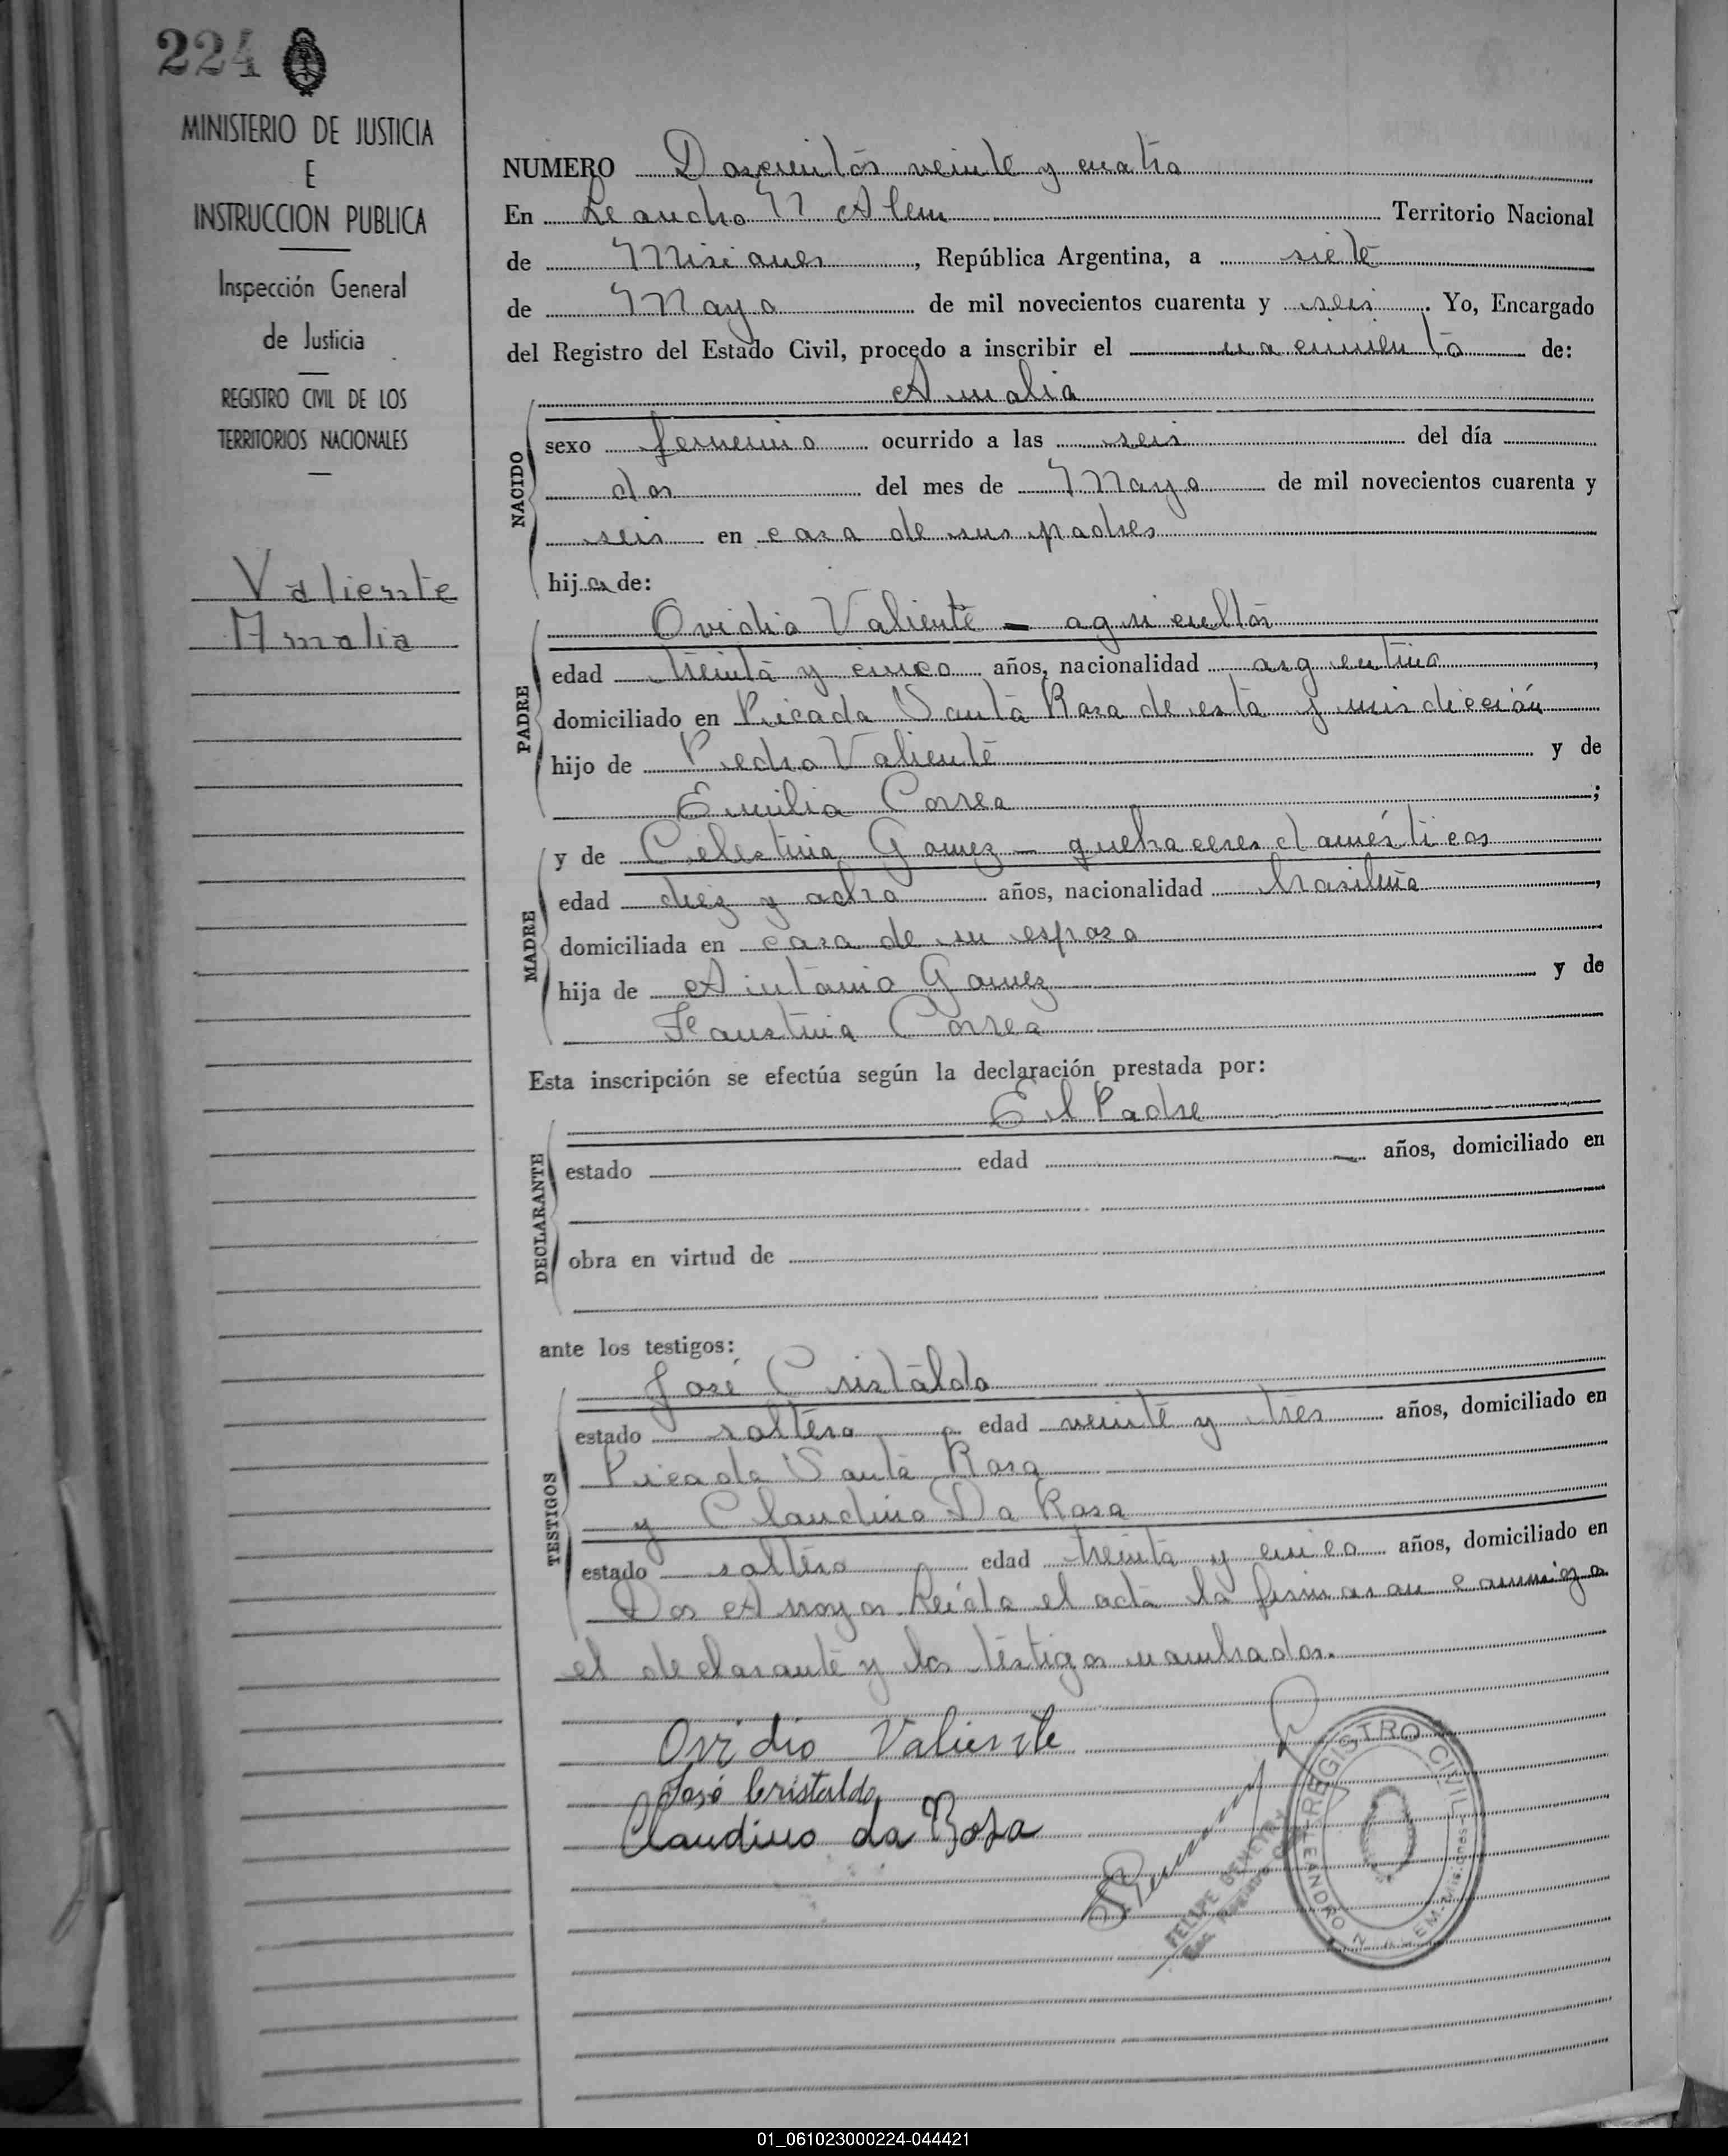 224
MINISTERIO DE JUSTICIA
E
INSTRUCCION PUBLICA
Inspección General
de Justicia
REGISTRO CIVIL DE LOS
TERRITORIOS NACIONALES
Valiente
Amalia
NUMERO Doscientos veinte y cuatro
En Leandro N Alem Territorio Nacional
de Misiones, República Argentina, a siete
de Mayo de mil novecientos cuarenta y seis. Yo, Encargado
del Registro del Estado Civil, procedo a inscribir el nacimiento de:
Amalia
NACIDO
sexo femenino ocurrido a las seis del día
dos del mes de Mayo de mil novecientos cuarenta y
seis en casa de sus padres
hija de:
PADRE
Ovidio Valiente - agricultor
edad treinta y cinco años, nacionalidad argentino,
domiciliado en Picada Santa Rosa de esta jurisdicción
hijo de Pedro Valiente y de
Emilia Correa;
MADRE
y de Celestina Gomez - quehaceres domésticos
edad diez y ocho años, nacionalidad brasileña,
domiciliada en casa de su esposo
hija de Antonio Gomez y de
Faustina Correa
Esta inscripción se efectúa según la declaración prestada por:
DECLARANTE
El Padre
estado edad años, domiciliado en
obra en virtud de
ante los testigos:
TESTIGOS
José Cristaldo
estado soltero edad veinte y tres años, domiciliado en
Picada Santa Rosa
y Claudino Da Rosa
estado soltero edad treinta y cinco años, domiciliado en
Dos Arroyos Leída el acta la firmaran conmigo
el declarante y los testigos nombrados.
Ovidio Valiente
José Cristaldo
Claudino da Rosa
FELIPE
REGISTRO CIVIL
LEANDRO N. ALEM - Misiones
01_061023000224-044421